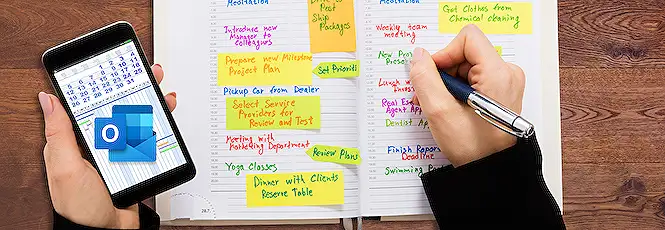 Meditation
Post
Ship
Packages
Introduce new
Manager to
colleagues
Prepare new Milestone
Project Plan
Set Prioriti
Pickup Car from Dealer
Select Service
Providers for
Review and Test
Meeting with
Marketing Department
Review Plans
Yoga Classes
Dinner with Clients
Reserve Table
Meditation
Got Clothes from
Chemical cleaning
Weekly team
meeting
Lunch w
Real Es
Agent App
Dentist App
Finish Raports
Deadline
Swimming
O